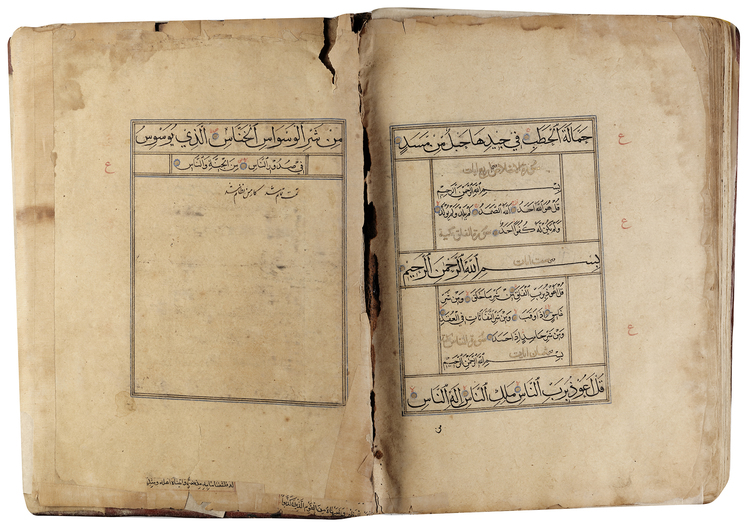 حمالة الحطب في جيدها حبل من مسد
بسم الله الرحمن الرحيم
قل هو الله احد الله الصمد لم يلد ولم يولد
ولم يكن له كفوا احد سورة الفلق مكية
بسم الله الرحمن الرحيم
قل اعوذ برب الفلق من شر ما خلق ومن شر
غاسق اذا وقب ومن شر النفاثات في العقد
ومن شر حاسد اذا حسد سورة الناس
بسم الله الرحمن الرحيم
قل اعوذ برب الناس ملك الناس اله الناس
ع
ع
ع
من شر الوسواس الخناس الذي يوسوس
في صدور الناس من الجنة والناس
ع
تمت تمام شد كار من نظام شد